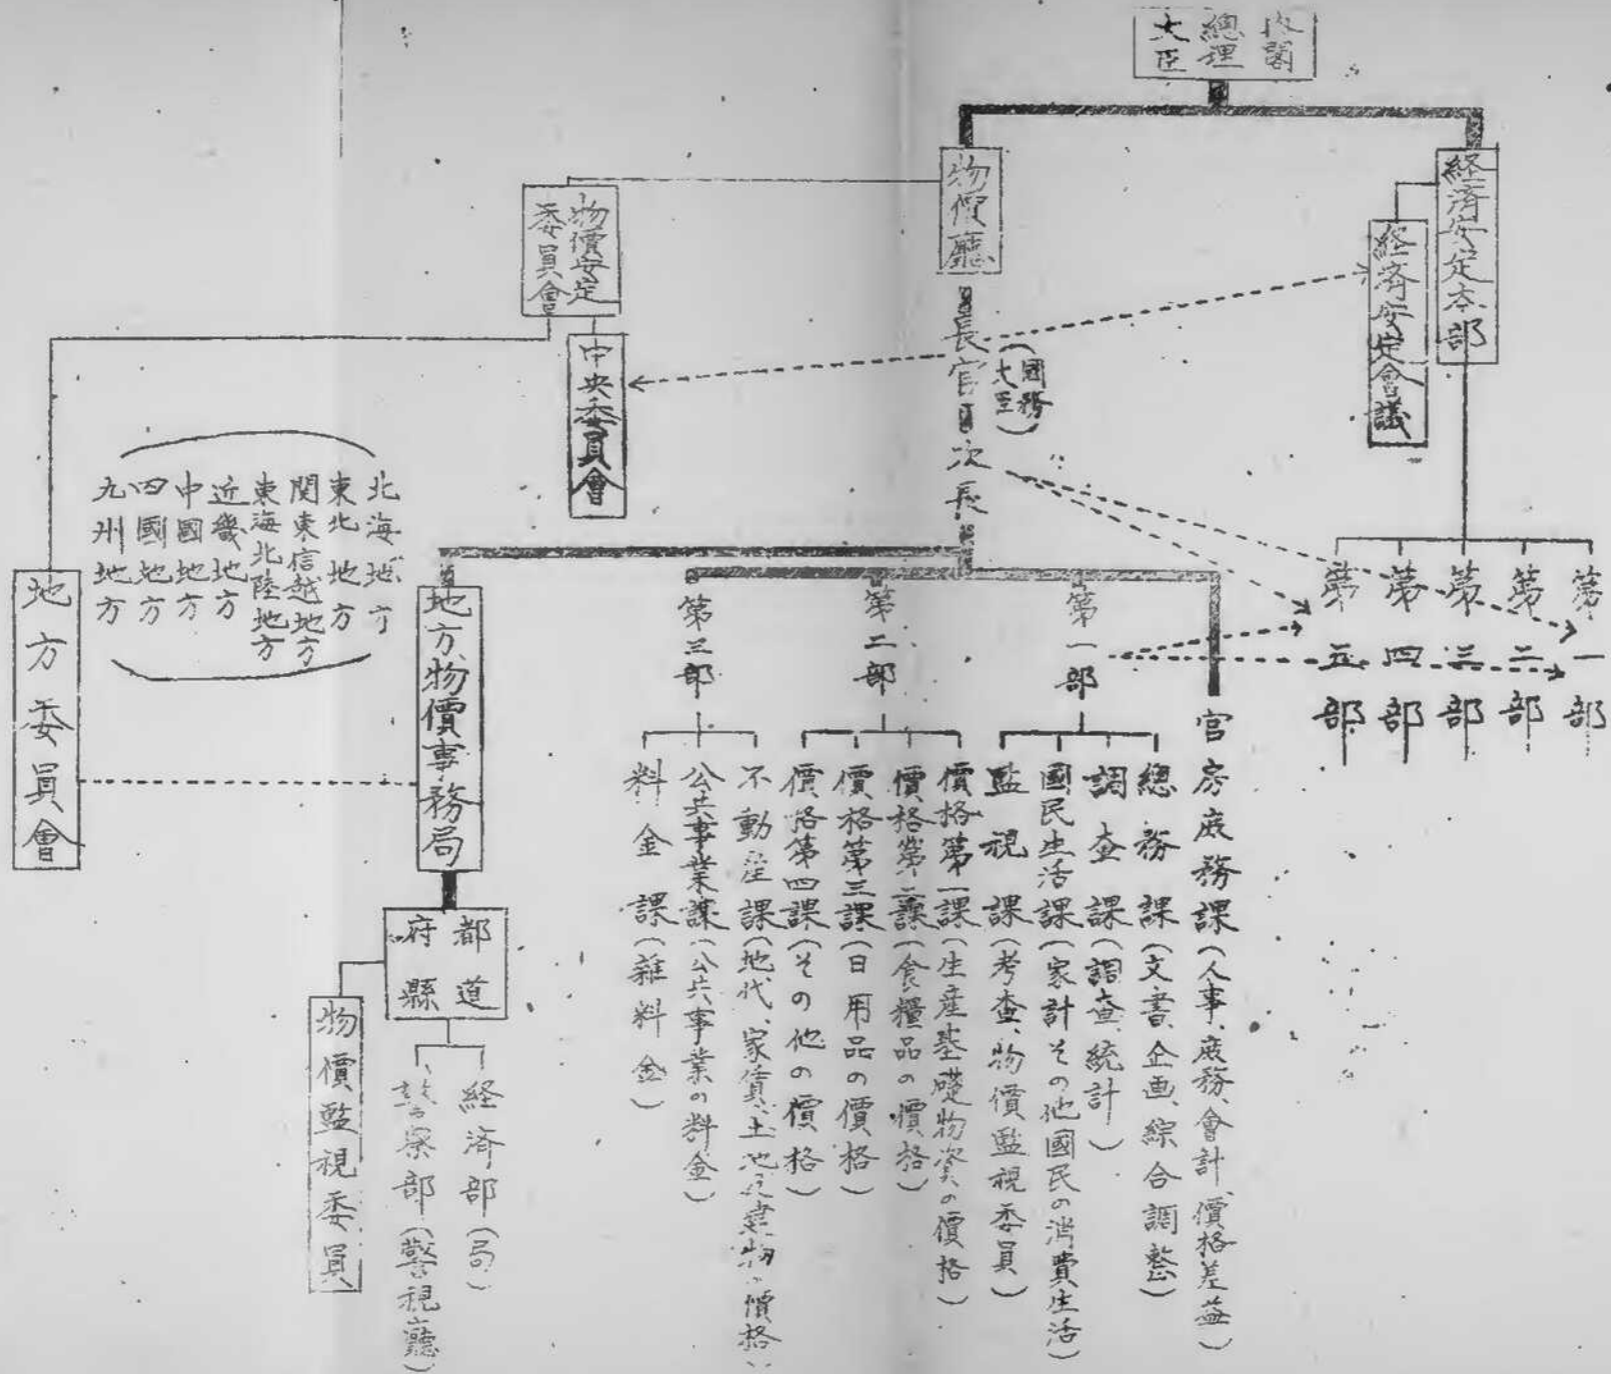 内閣
總理
大臣
経済安定本部
経済安定會議
第一部
第二部
第三部
第四部
第五部
物價廳
長官
(國務
大臣)
次長
物價安定
委員會
中央委員會
官房庶務課(人事、庶務、會計、價格差益)
第一部
總務課(文書、企画、綜合調整)
調査課(調査、統計)
國民生活課(家計その他國民の消費生活)
監視課(考査、物價監視委員)
第二部
價格第一課(生産基礎物資の價格)
價格第二課(食糧品の價格)
價格第三課(日用品の價格)
價格第四課(その他の價格)
第三部
不動産課(地代、家賃、土地建物の價格)
公共事業課(公共事業の料金)
料金課(雜料金)
地方物價事務局
北海地方
東北地方
関東信越地方
東海北陸地方
近畿地方
中國地方
四國地方
九州地方
地方委員會
都道
府縣
経済部(局)
警察部(警視廳)
物價監視委員